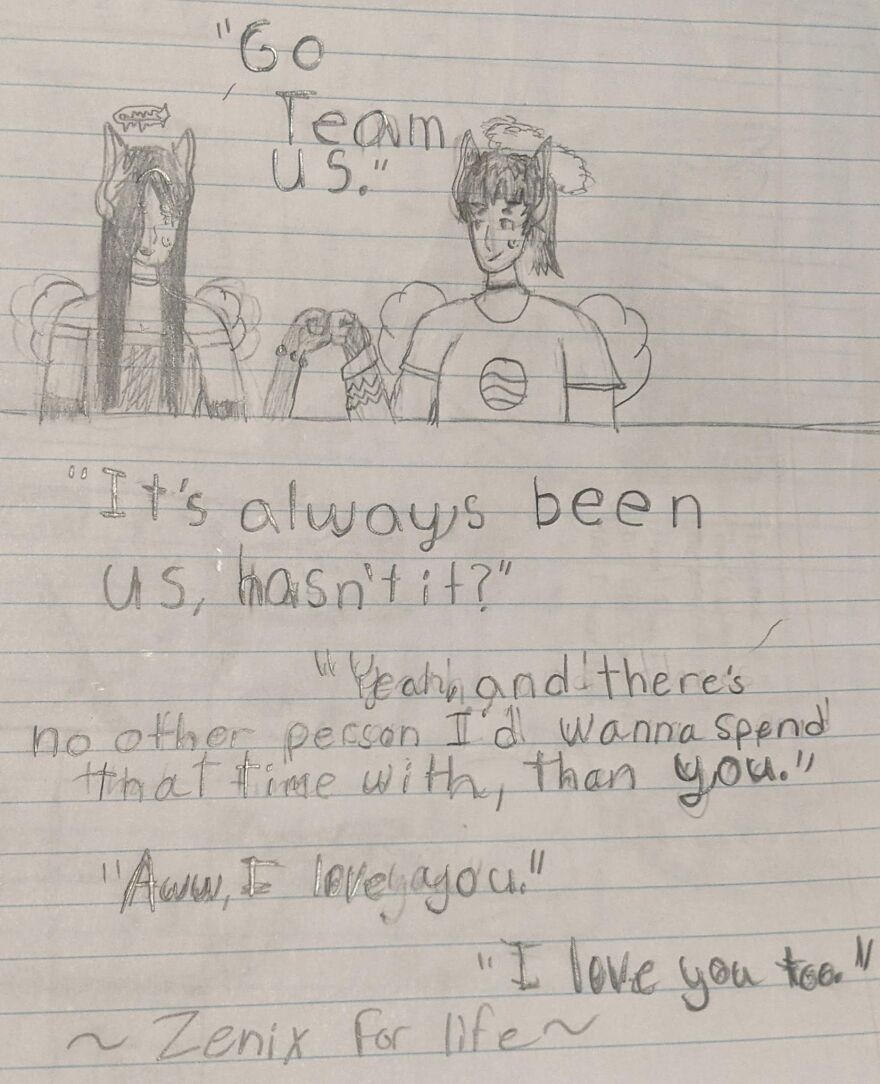 "Go
Team
us."
"It's always been
us, hasn't it?"
"Yeah, and there's
no other person I'd wanna spend
that time with, than you."
"Aww, I love you."
"I love you too."
~ Zenix for life ~